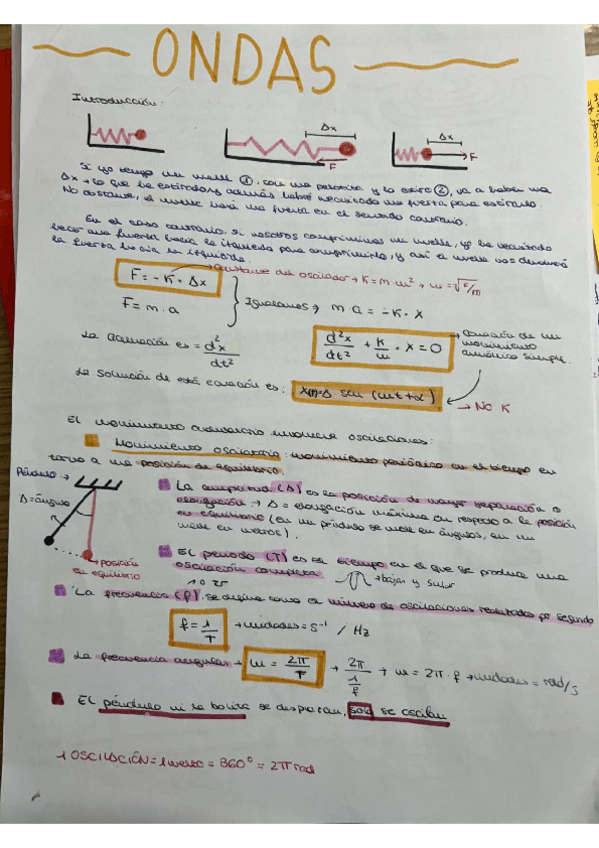 ONDAS
Introducción:
Δx
Δx
F
F
Si yo tengo un muelle ①, con una pelotita y lo estiro ②, va a haber una
Δx → lo que he estirado y además habré necesitado una fuerza para estirarlo.
No obstante, el muelle hará una fuerza en el sentido contrario.
En el caso contrario, si nosotros comprimimos un muelle, yo he necesitado
hacer una fuerza hacia la izquierda para comprimirlo, y así el muelle nos devolverá
la fuerza hacia la izquierda.
F = -K · Δx
Constante del oscilador → K = m·ω² → ω = √K/m
F = m · a
Igualamos → m a = -K · x
La aceleración es = d²x/dt²
d²x/dt² + K/m · x = 0
→ Ecuación de un
movimiento
armónico simple.
La solución de esta ecuación es:
x(t)=A sen (ωt+α)
→ NO K
El movimiento ondulatorio involucra oscilaciones:
Movimiento oscilatorio: movimiento periódico en el tiempo en
torno a una posición de equilibrio.
Péndulo →
A=ángulo
→ posición
en equilibrio
La amplitud (A) es la posición de mayor separación o
elongación → A = elongación máxima en respecto a la posición
en equilibrio (en un péndulo se mide en ángulos, en un
muelle en metros).
El periodo (T) es el tiempo en el que se produce una
oscilación completa.
→ bajar y subir
La frecuencia (f) se define como el número de oscilaciones por segundo
f = 1/T
→ unidades = s⁻¹ / Hz
La frecuencia angular → ω = 2π/T → 2π/(1/f) → ω = 2π · f → unidades = rad/s
El péndulo ni la bolita se desplazan, solo se oscilan
1 OSCILACIÓN = 1 vuelta = 360° = 2π rad